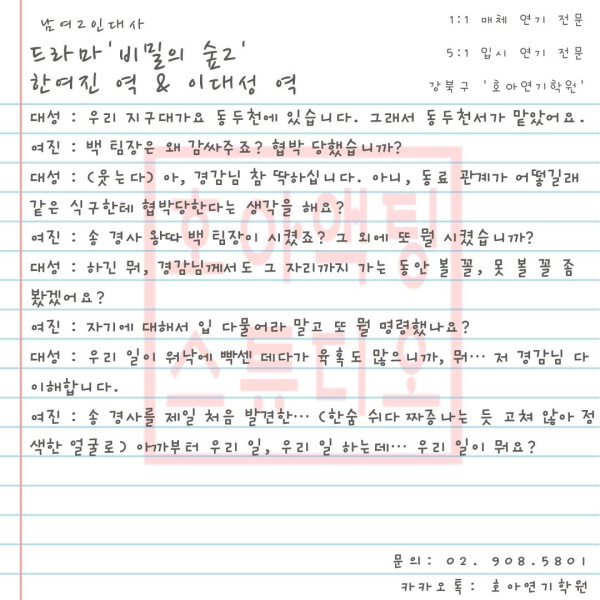 남여2인대사
1:1 매체 연기 전문
드라마'비밀의 숲2'
5:1 입시 연기 전문
한여진 역 & 이대성 역
강북구 '호아연기학원'
대성 : 우리 지구대가요 동두천에 있습니다. 그래서 동두천서가 맡았어요.
여진 : 백 팀장은 왜 감싸주죠? 협박 당했습니까?
대성 : (웃는다) 아, 경감님 참 딱하십니다. 아니, 동료 관계가 어떻길래
같은 식구한테 협박당한다는 생각을 해요?
여진 : 송 경사 왕따 백 팀장이 시켰죠? 그 외에 또 뭘 시켰습니까?
대성 : 하긴 뭐, 경감님께서도 그 자리까지 가는 동안 볼 꼴, 못 볼 꼴 좀
봤겠어요?
여진 : 자기에 대해서 입 다물어라 말고 또 뭘 명령했나요?
대성 : 우리 일이 워낙에 빡센 데다가 유혹도 많으니까, 뭐… 저 경감님 다
이해합니다.
여진 : 송 경사를 제일 처음 발견한… (한숨 쉬다 짜증나는 듯 고쳐 앉아 정
색한 얼굴로) 아까부터 우리 일, 우리 일 하는데… 우리 일이 뭐요?
호아액팅
스튜디오
문의: 02. 908.5801
카카오톡: 호아연기학원